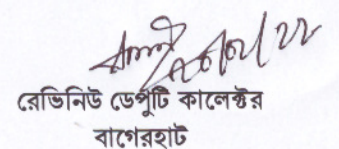 রেভিনিউ ডেপুটি কালেক্টর
বাগেরহাট